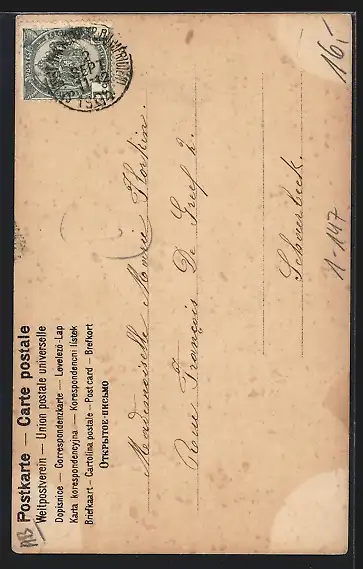 Postkarte — Carte postale
Weltpostverein — Union postale universelle
Dopisnice — Correspondenzkarte — Levelező-Lap
Karta korespondencyjna — Korespondencni listek
Briefkaart — Cartolina postale — Post card — Brefkort
Открытое письмо
Mademoiselle Marie Florkin.
Rue François De Greef 2.
Schaerbeek.
16.-
1-147